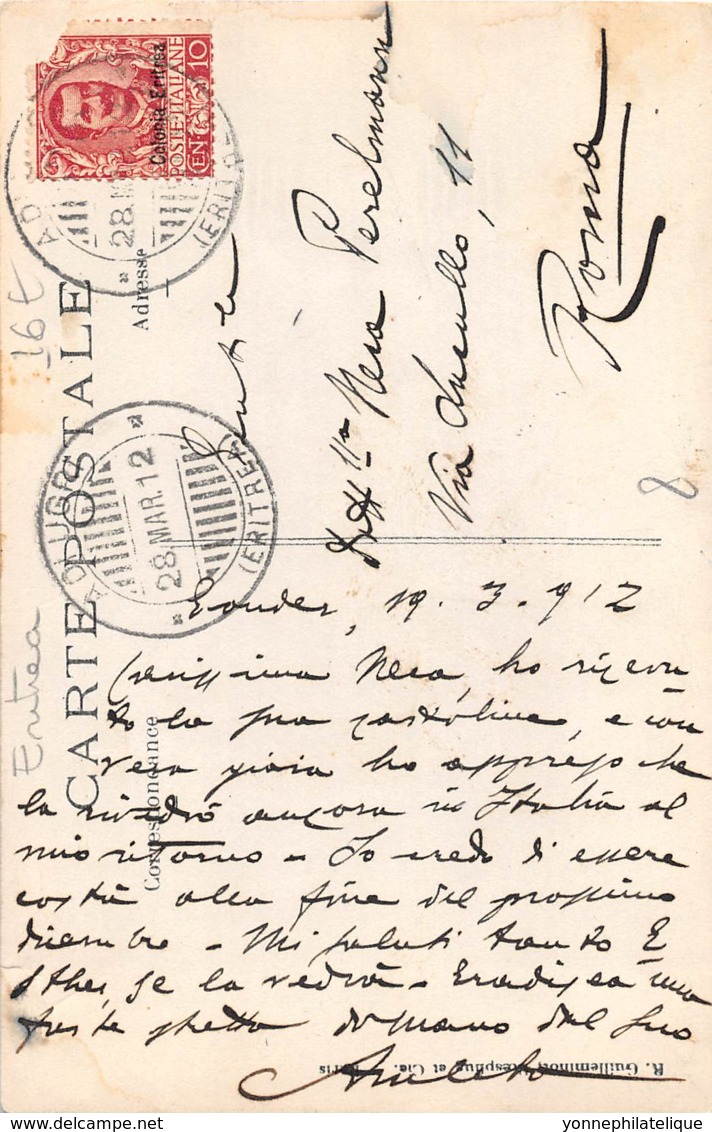 POSTE·ITALIANE
CEN 10
Colonia Eritrea
28 M
(ERITRE
16 t
CARTE POSTALE
Adresse
ADI UGRI
28.MAR.12
(ERITREA)
Nera Perelmann
Via Lucullo, 11
Roma
8
Eritrea
Correspondance
Gondar, 19. 3. 912
Carissima Nera, ho ricevu
to la sua cartolina, e con
vera gioia ho appreso che
la rivedrò ancora in Italia al
mio ritorno - Io credo di essere
costà alla fine del prossimo
dicembre - Mi saluti tanto E
sther, se la vedrà - Eradisca una
forte stretta di mano dal suo
R. Guilleminot, Bœspflug et Cie. - Paris
yonnephilatelique